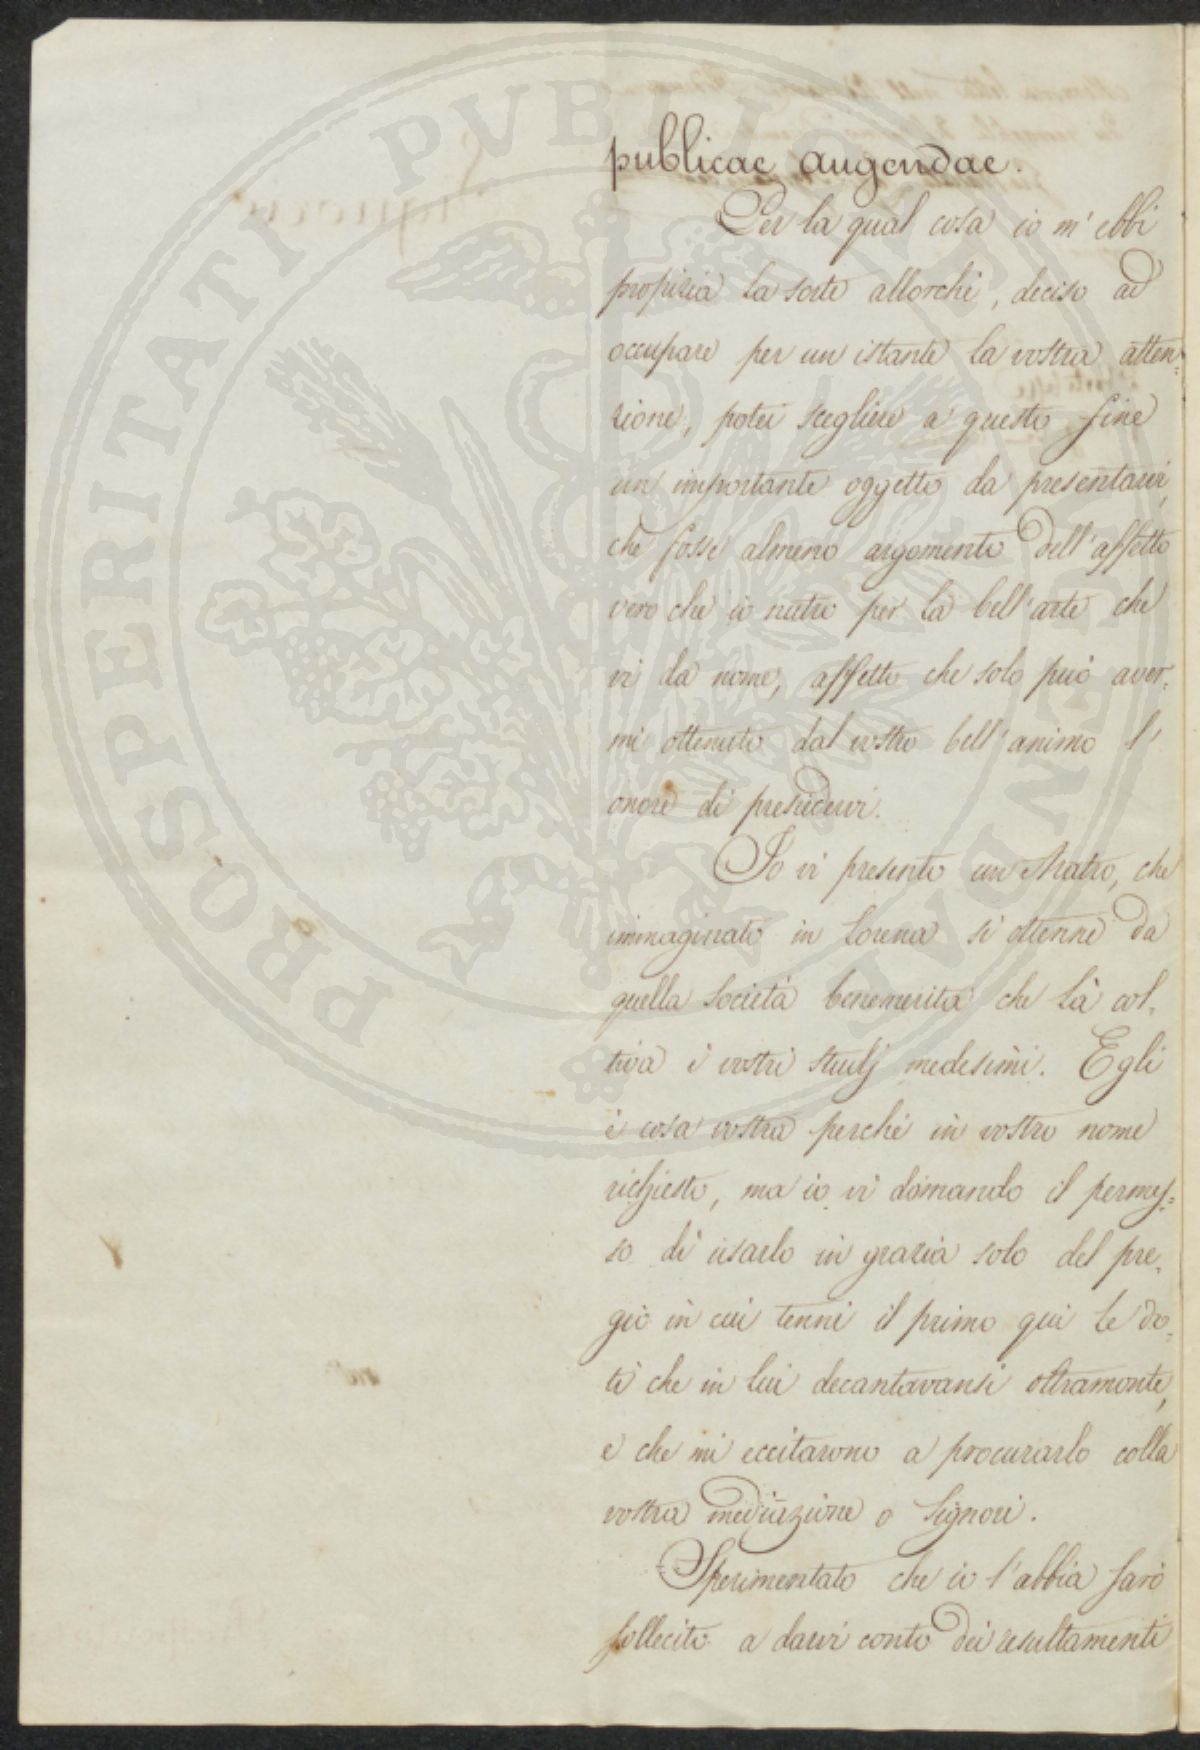 publicae augendae.
Per la qual cosa io m'ebbi
propizia la sorte allorchè, deciso ad
occupare per un istante la vostra atten=
zione, potei scegliere a questo fine
un importante oggetto da presentarvi,
che fosse almeno argomento dell'affetto
vero che io nutro per la bell'arte che
vi dà nome, affetto che solo può aver=
mi ottenuto dal vostro bell'animo l'
onore di presiedervi.
Io vi presento un Aratro, che
immaginato in Lorena si ottenne da
quella Società benemerita che là col=
tiva i vostri studj medesimi. Egli
è cosa vostra perchè in vostro nome
richiesto, ma io vi domando il permes=
so di usarlo in grazia solo del pre=
gio in cui tenni il primo qui le do=
ti che in lui decantavansi oltramonte,
e che mi eccitarono a procurarlo colla
vostra mediazione o Signori.
Sperimentato che io l'abbia sarò
sollecito a darvi conto dei resultamenti
PROSPERITATI PUBLICAE AUGENDAE